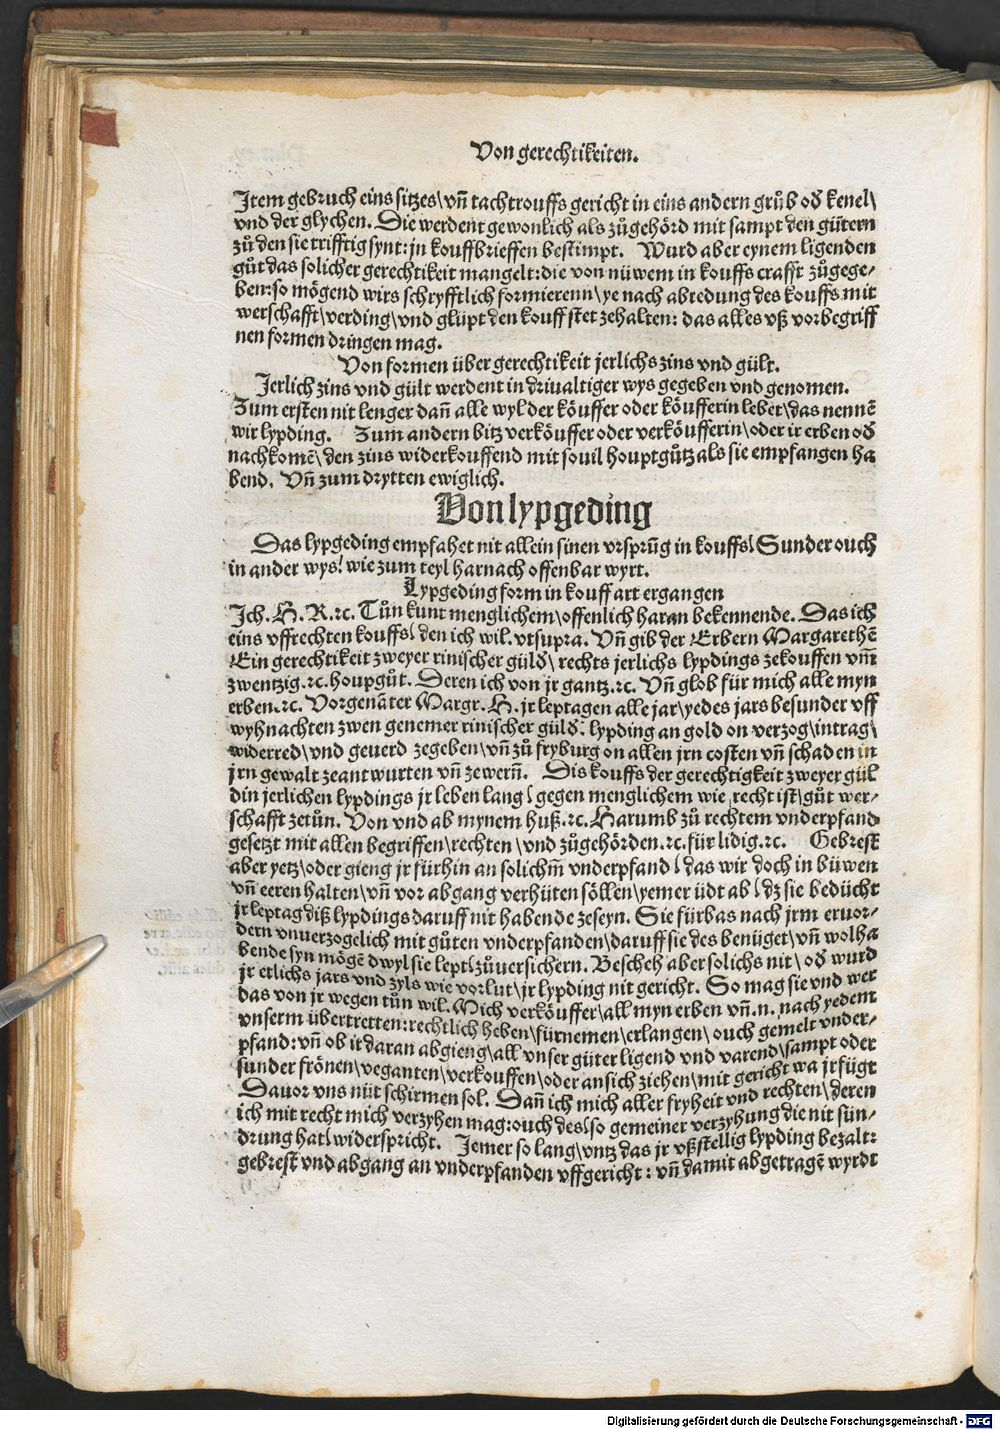 Von gerechtikeiten.
Jtem gebruch eins sitzes\ vn̄ tachtrouffs gericht in eins andern grůb od̕ kenel\
vnd der glychen. Die werdent gewonlich als zůgehörd mit sampt den gütern
zů den sie trifftig synt: jn kouffbrieffen bestimpt. Wurd aber eynem ligenden
gůt das solicher gerechtikeit mangelt: die von nüwem in kouffs crafft zůgege⸗
ben: so mögend wirs schryfftlich formierenn\ ye nach abredung des kouffs mit
werschafft\ verding\ vnd glüpt den kouff stet zehalten: das alles vß vorbegriff
nen formen dringen mag.
Von formen über gerechtikeit jerlichs zins vnd gült.
Jerlich zins vnd gült werdent in driualtiger wys gegeben vnd genomen.
Zum ersten nit lenger dan̄ alle wyl der köuffer oder köufferin lebet\ das nennē
wir lypding. Zum andern bitz verköuffer oder verköufferin\ oder ir erben od̕
nachkomē\ den zins widerkouffend mit souil houptgůtz als sie empfangen ha
bend. Vn̄ zum drytten ewiglich.
Von lypgeding
Das lypgeding empfahet nit allein sinen vrsprūg in kouffs\ Sunder ouch
in ander wys\ wie zum teyl harnach offenbar wyrt.
Lypgeding form in kouff art ergangen
Jch. H. R. ⁊c. Tůn kunt menglichem\ offenlich haran bekennende. Das ich
eins vffrechten kouffs\ den ich wil. vtsupra. Vn̄ gib der Erbern Margarethē
Ein gerechtikeit zweyer rinischer güld̕\ rechts jerlichs lypdings zekouffen vm̄
zwentzig. ⁊c. houpgůt. Deren ich von jr gantz. ⁊c. Vn̄ glob für mich alle myn
erben. ⁊c. Vorgenāter Margr. H. jr leptagen alle jar\ yedes jars besunder vff
wyhnachten zwen genemer rinischer güld̕: lypding an gold on verzog\ intrag\
widerred\ vnd geuerd zegeben\ vn̄ zů fryburg on allen jrn costen vn̄ schaden in
jrn gewalt zeantwurten vn̄ zewern̄. Dis kouffs der gerechtigkeit zweyer gül
din jerlichen lypdings jr leben lang\ gegen menglichem wie recht ist\ gůt wer⸗
schafft zetůn. Von vnd ab mynem huß. ⁊c. Harumb zů rechtem vnderpfand
gesetzt mit allen begriffen\ rechten\ vnd zůgehörden. ⁊c. für lidig. ⁊c. Gebrest
aber yetz\ oder gieng jr fürhin an solichm̄ vnderpfand\ das wir doch in büwen
vn̄ eeren halten\ vn̄ vor abgang verhüten söllen\ yemer üdt ab\ dz sie bedücht
jr leptag diß lypdings daruff nit habende zeseyn. Sie fürbas nach jrm eruor⸗
dern vnuerzogelich mit gůten vnderpfanden\ daruff sie des benüget\ vn̄ wolha
bende syn mögē dwyl sie lept\ zůuersichern. Bescheh aber solichs nit\ od̕ wurd
jr etlichs jars vnd zyls wie vorlut\ jr lypding nit gericht. So mag sie vnd wer
das von jr wegen tůn wil. Mich verköuffer\ all myn erben vn̄. n. nach yedem
vnserm übertretten: rechtlich heben\ fürnemen\ erlangen\ ouch gemelt vnder⸗
pfand: vn̄ ob it daran abgieng\ all vnser güter ligend vnd varend\ sampt oder
sunder frönen\ veganten\ verkouffen\ oder an sich ziehen\ mit gericht wa jr fügt
Dauor vns nüt schirmen sol. Dan̄ ich mich aller fryheit vnd rechten\ deren
ich mit recht mich verzyhen mag: ouch des\ so gemeiner verzyhung die nit sün⸗
drung hat\ widerspricht. Jemer so lang\ vntz das jr vßstellig lypding bezalt:
gebrest vnd abgang an vnderpfanden vffgericht: vn̄ damit abgetragē wyrdt
Digitalisierung gefördert durch die Deutsche Forschungsgemeinschaft - DFG